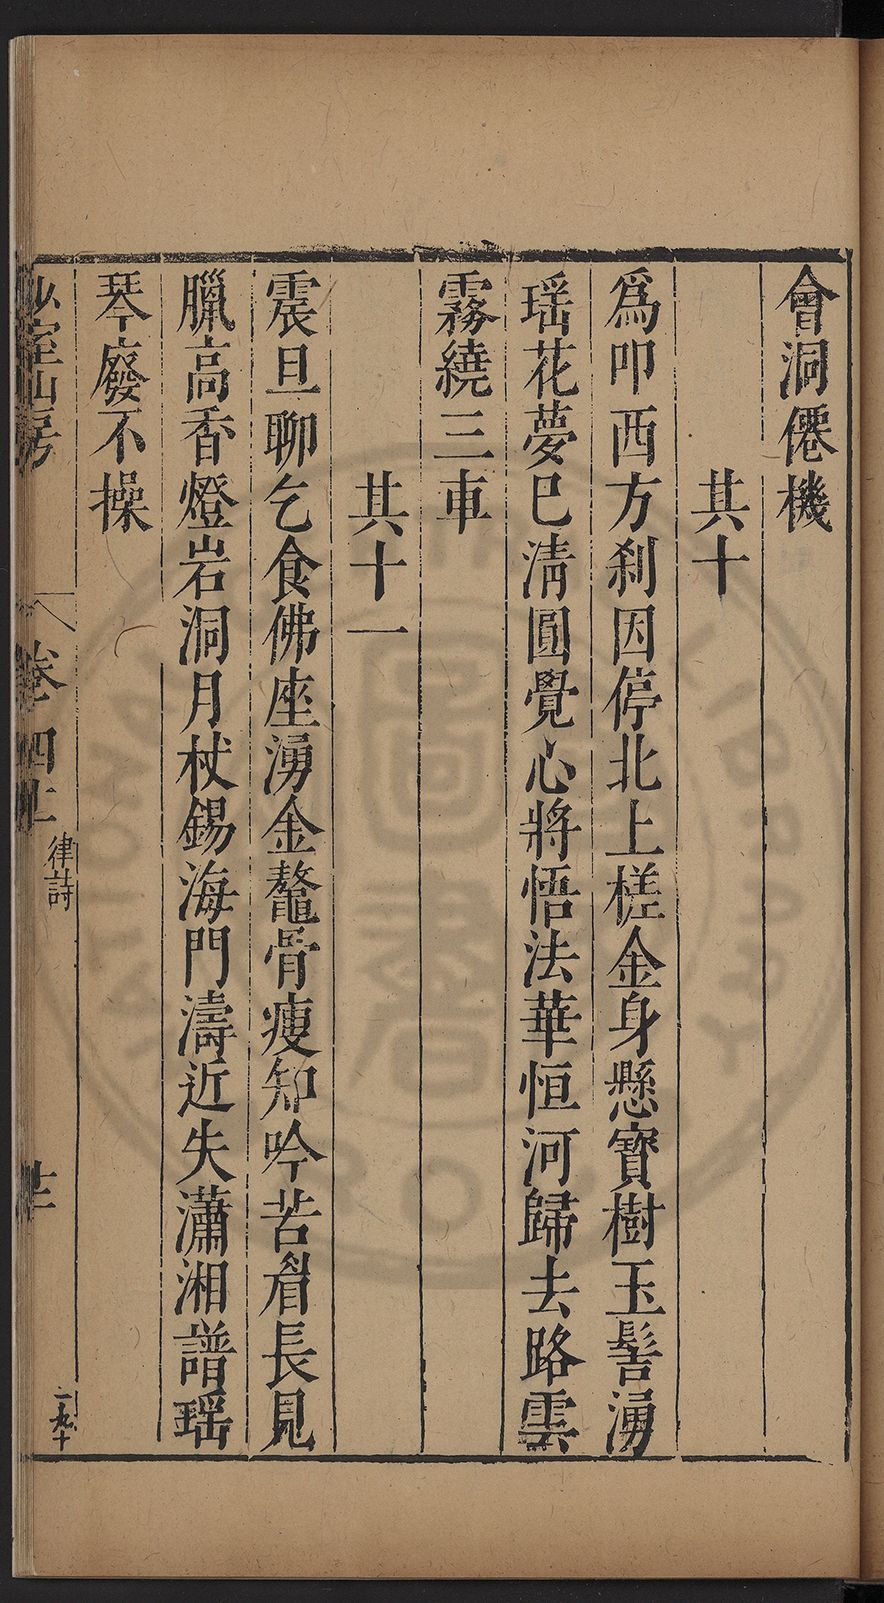 會洞僊機
其十
爲叩西方刹因停北上槎金身懸寶樹玉髻湧
瑶花夢巳淸圓覺心將悟法華恒河歸去路雲
霧繞三車
其十一
震旦聊乞食佛座湧金鼇骨瘦知吟苦眉長見
臘高香燈岩洞月杖錫海門濤近失瀟湘譜瑶
琴廢不操
少室山房
卷四上
律詩